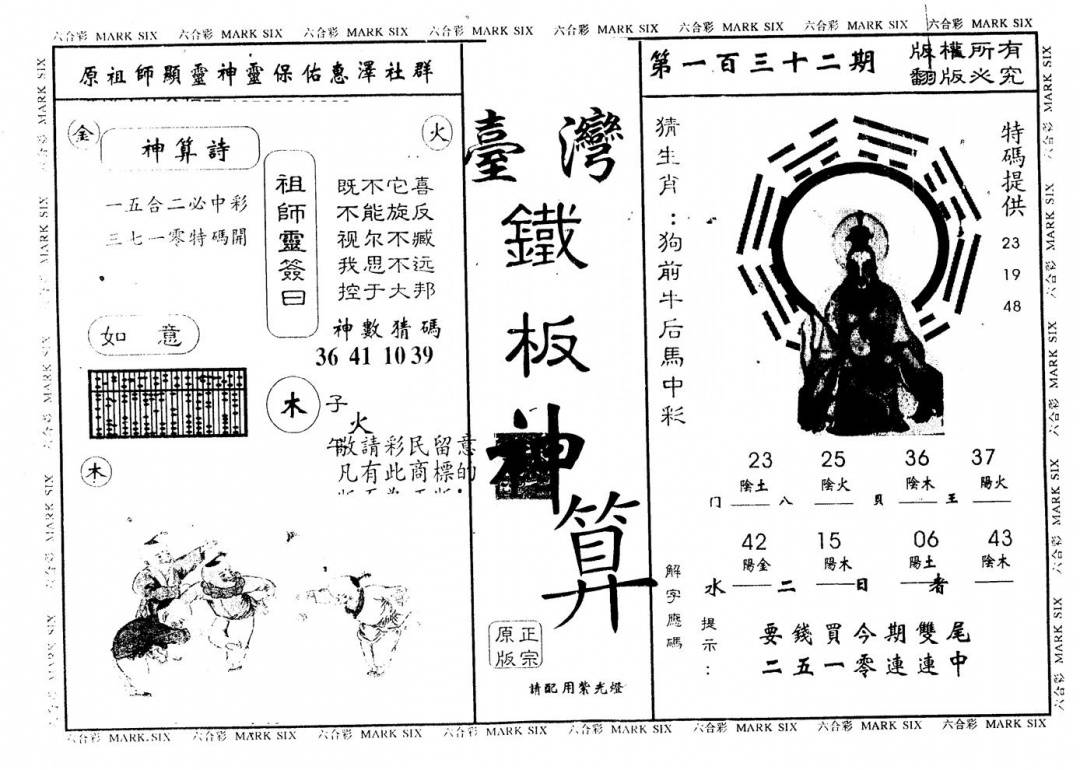 六合彩 MARK SIX 六合彩 MARK SIX 六合彩 MARK SIX 六合彩 MARK SIX 六合彩 MARK SIX 六合彩 MARK SIX 六合彩 MARK SIX 六合彩 MARK SIX
原祖師顯靈神靈保佑惠澤社群
金
神算詩
火
一五合二必中彩
三七一零特碼開
祖師靈簽曰
既不它喜
不能旋反
视尔不臧
我思不远
控于大邦
神數猜碼
36 41 10 39
如意
木
子
火
午
敬請彩民留意
凡有此商標的
木
臺灣
鐵
板
神
算
正宗
原版
請配用紫光燈
第一百三十二期
版權所有
翻版必究
猜生肖:狗前牛后馬中彩
特碼提供
23
19
48
23 25 36 37
陰土 陰火 陰木 陽火
门 八 貝 王
42 15 06 43
陽金 陽木 陽土 陰木
水 二 日 者
解字應碼
提示:
要錢買今期雙尾
二五一零連連中
六合彩 MARK SIX 六合彩 MARK SIX 六合彩 MARK SIX 六合彩 MARK SIX 六合彩 MARK SIX 六合彩 MARK SIX 六合彩 MARK SIX 六合彩 MARK SIX